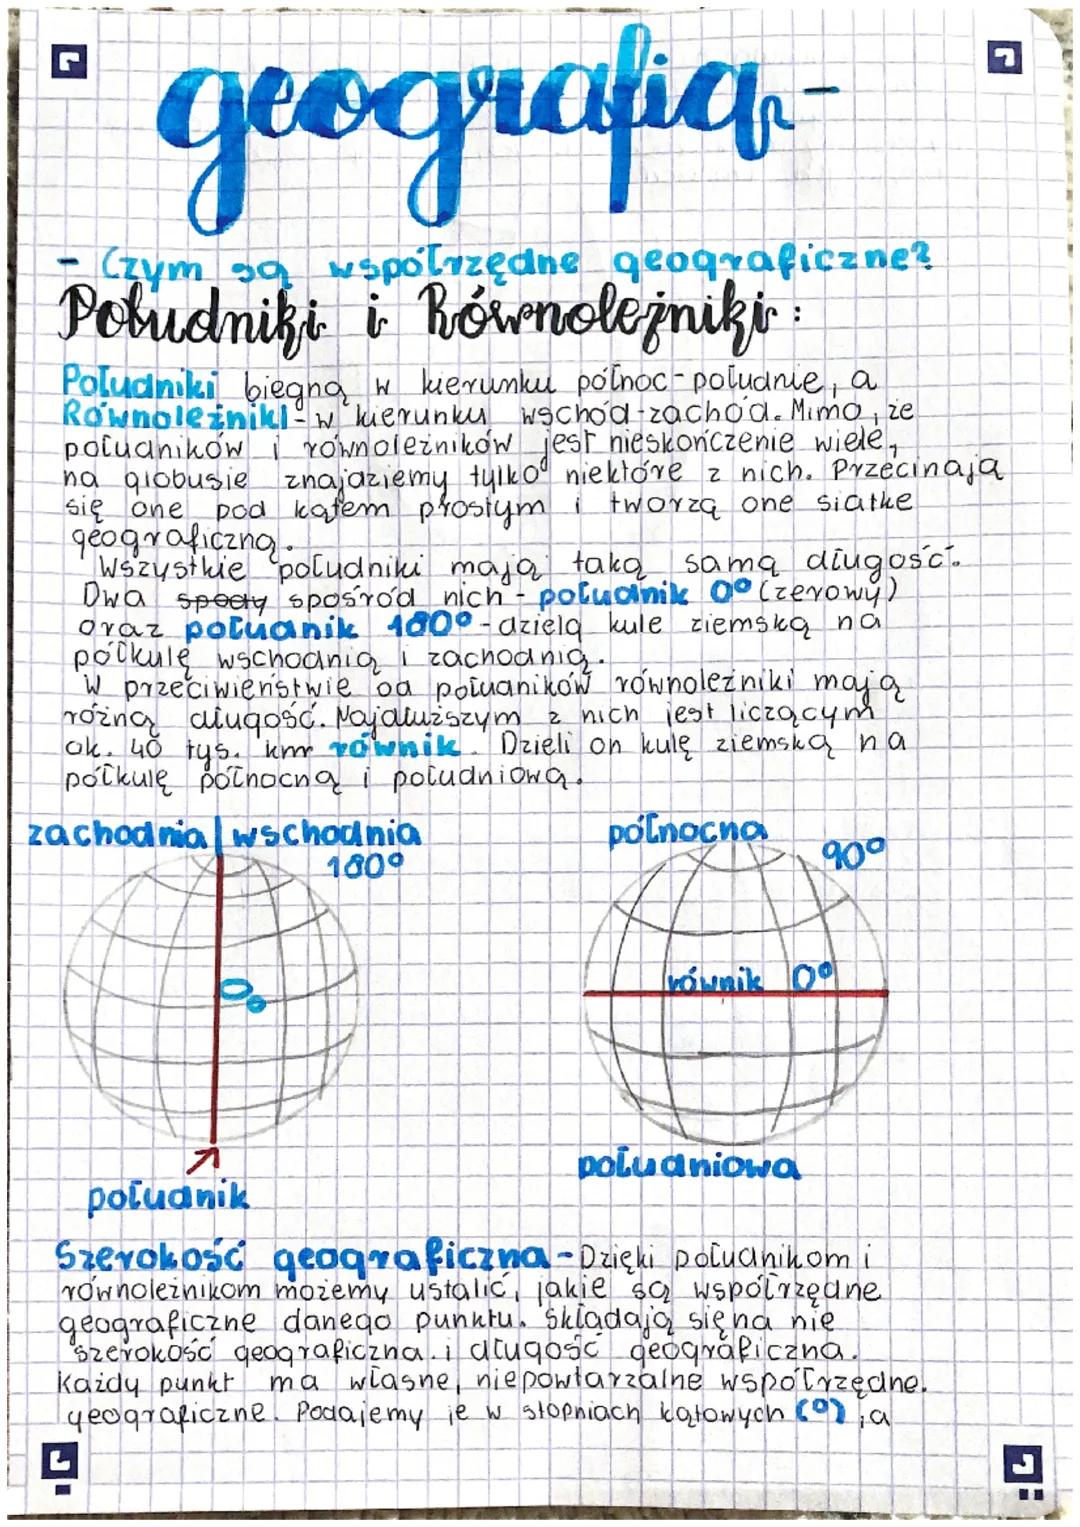 geografia -
- Czym są współrzędne geograficzne?
Południki i Równoleżniki:
Południki biegną w kierunku północ-południe, a
Równoleżniki - w kierunku wschód-zachód. Mimo, że
południków i równoleżników jest nieskończenie wiele,
na globusie znajdziemy tylko niektóre z nich. Przecinają
się one pod kątem prostym i tworzą one siatke
geograficzną.
Wszystkie południki mają taką samą długość.
Dwa spody spośród nich - południk 0° (zerowy)
oraz południk 180° - dzielą kule ziemską na
półkulę wschodnią i zachodnią.
W przeciwieństwie od południków równoleżniki mają
różną długość. Najdłuższym z nich jest liczącym
ok. 40 tys. km równik. Dzieli on kulę ziemską na
półkulę północną i południową.
zachodnia | wschodnia
180°
0°
południk
północna
90°
równik 0°
południowa
Szerokość geograficzna - Dzięki południkom i
równoleżnikom możemy ustalić, jakie są współrzędne
geograficzne danego punktu. Składają się na nie
szerokość geograficzna i długość geograficzna.
Każdy punkt ma własne, niepowtarzalne współrzędne.
geograficzne. Podajemy je w stopniach kątowych (°), a